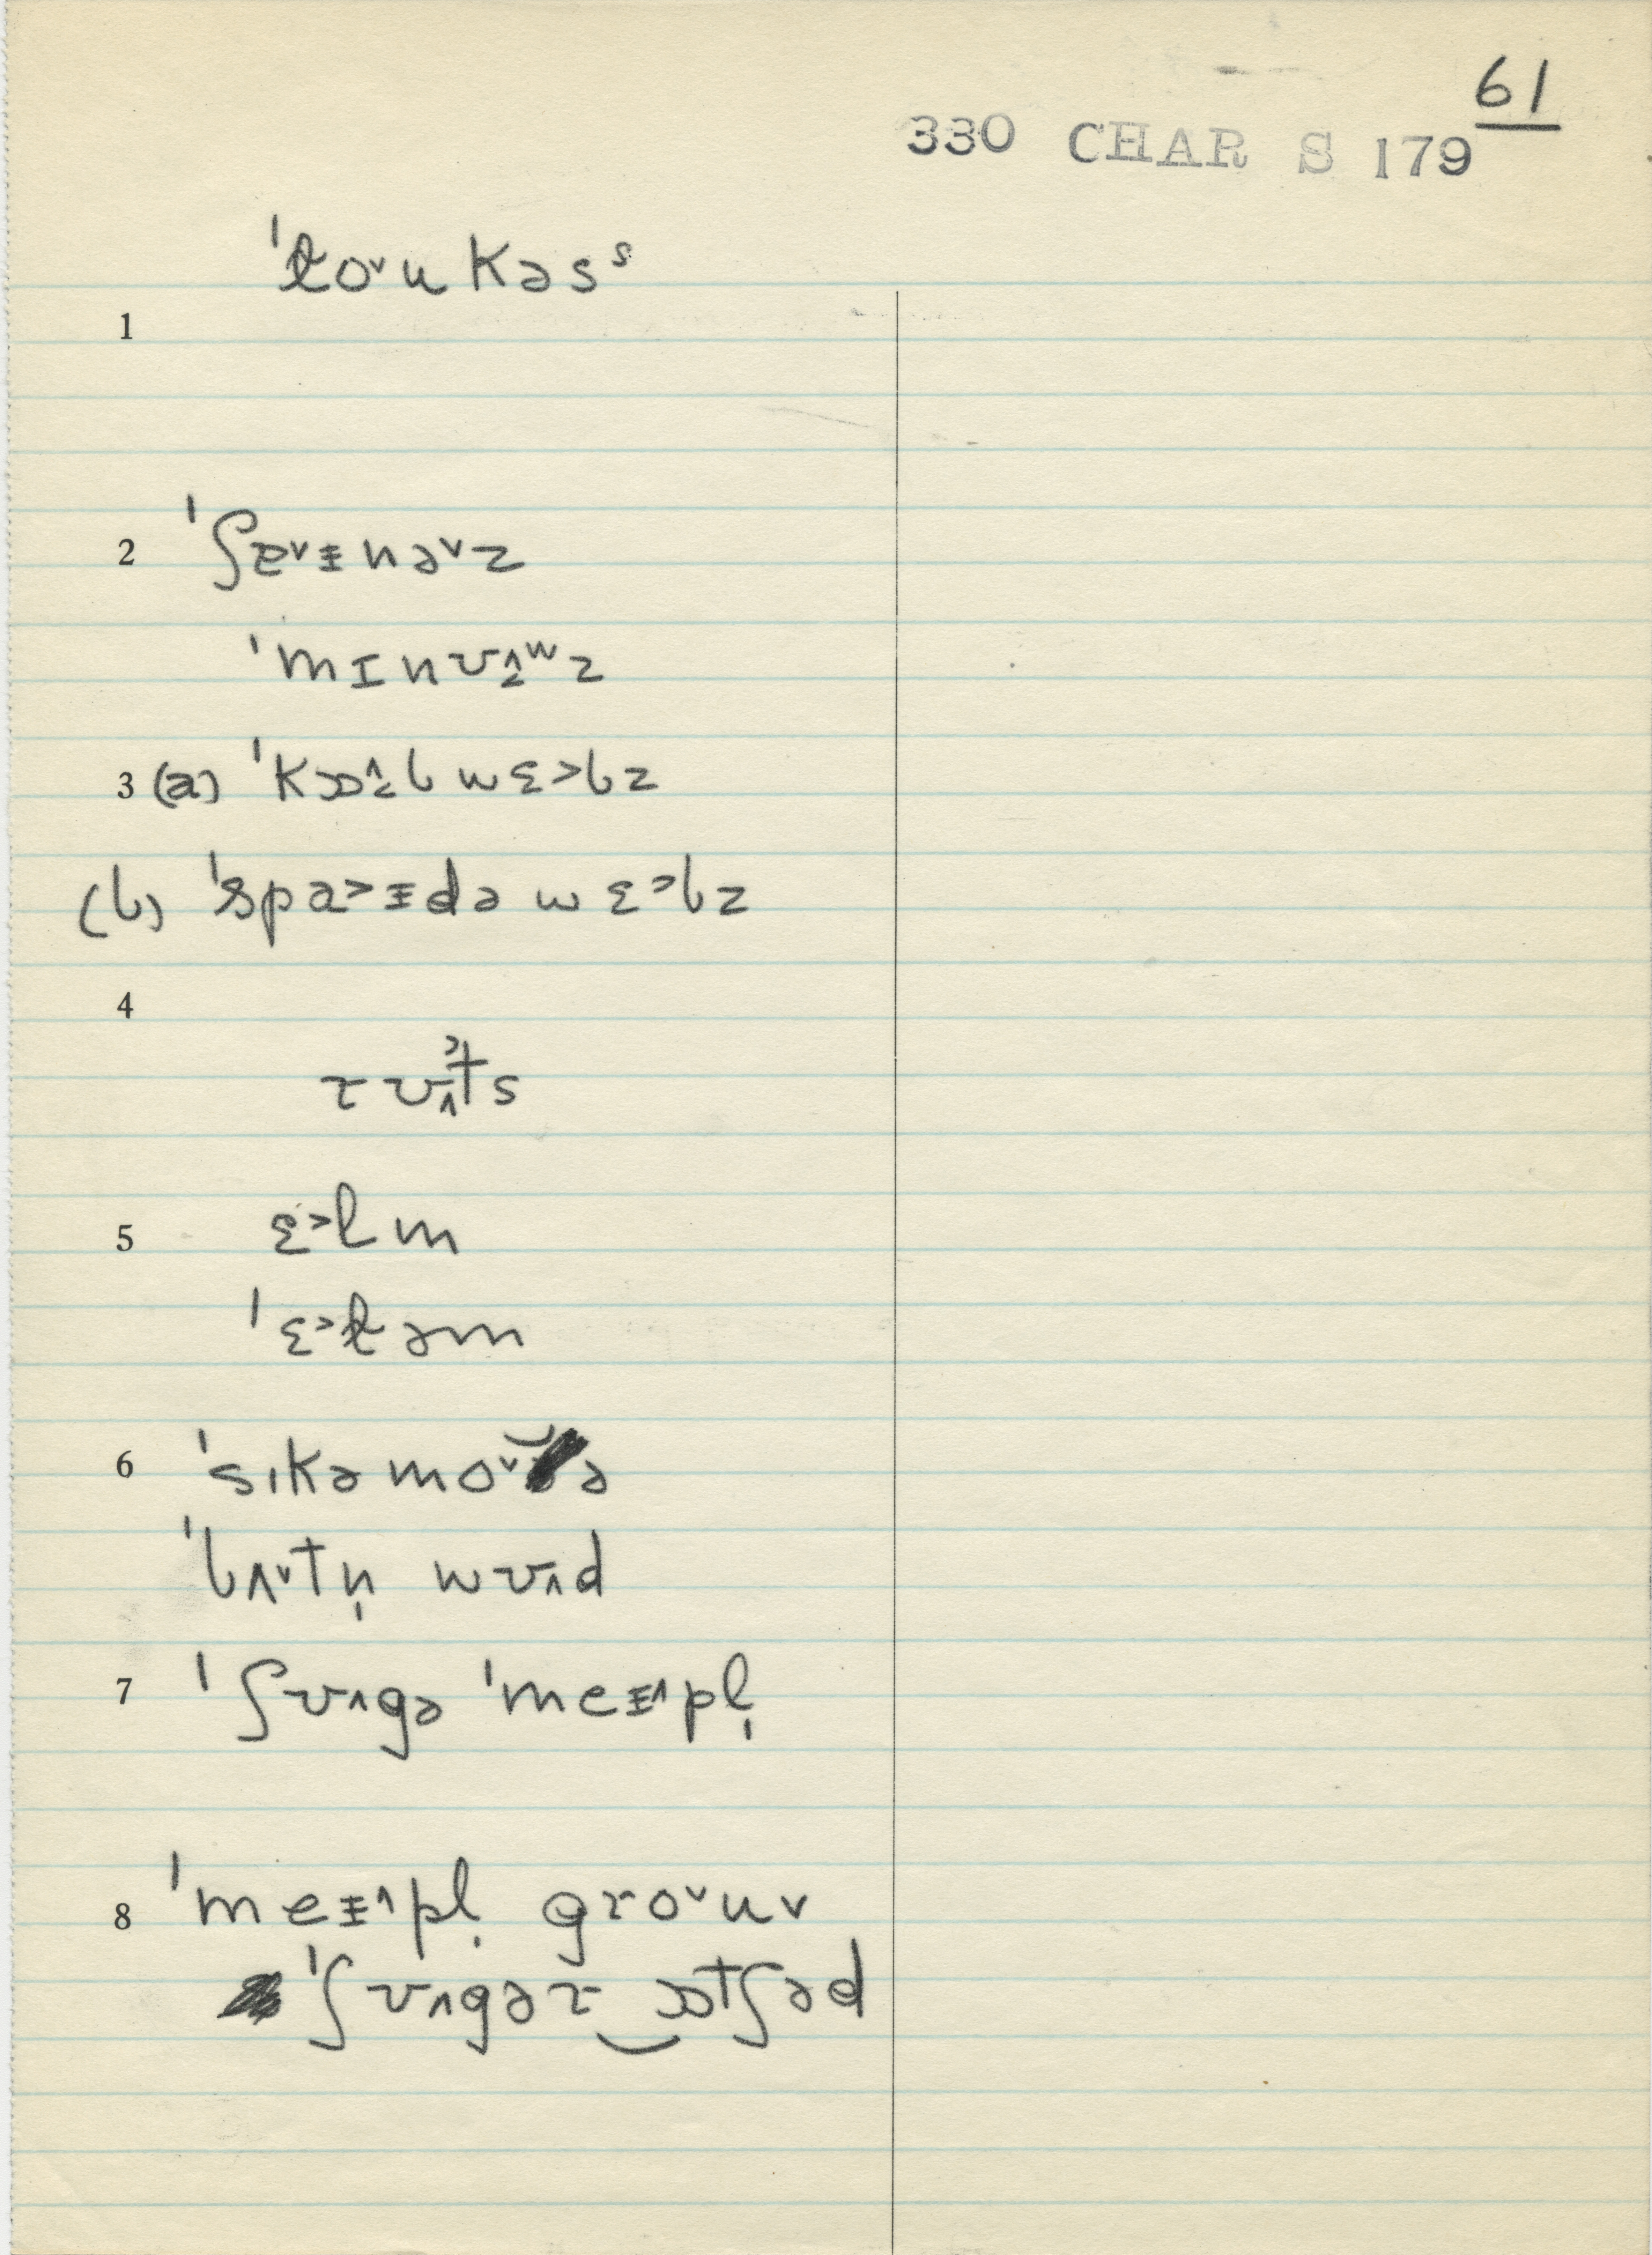 61
330 CHAR S 179
1 ˈɫo˅ukəsˢ
2 ˈʃɐ˅ɨnə˅z
ˈmɪnʊ˄ʷz
3 (a) ˈkɒ˄bwɛ˃bz
(b) ˈspa˃ɨdə wɛ˃bz
4 rʊ˄ts
5 ɛ˃lm
ˈɛ˃ɫəm
6 ˈsɪkəmo˅ə
ˈbʌ˅tn̩ wʊ˄d
7 ˈʃʊ˄gə ˈmeɨ˄pl̩
8 ˈmeɨ˄pl̩ gro˅uv
ˈʃʊ˄gər‿ɒtʃəd